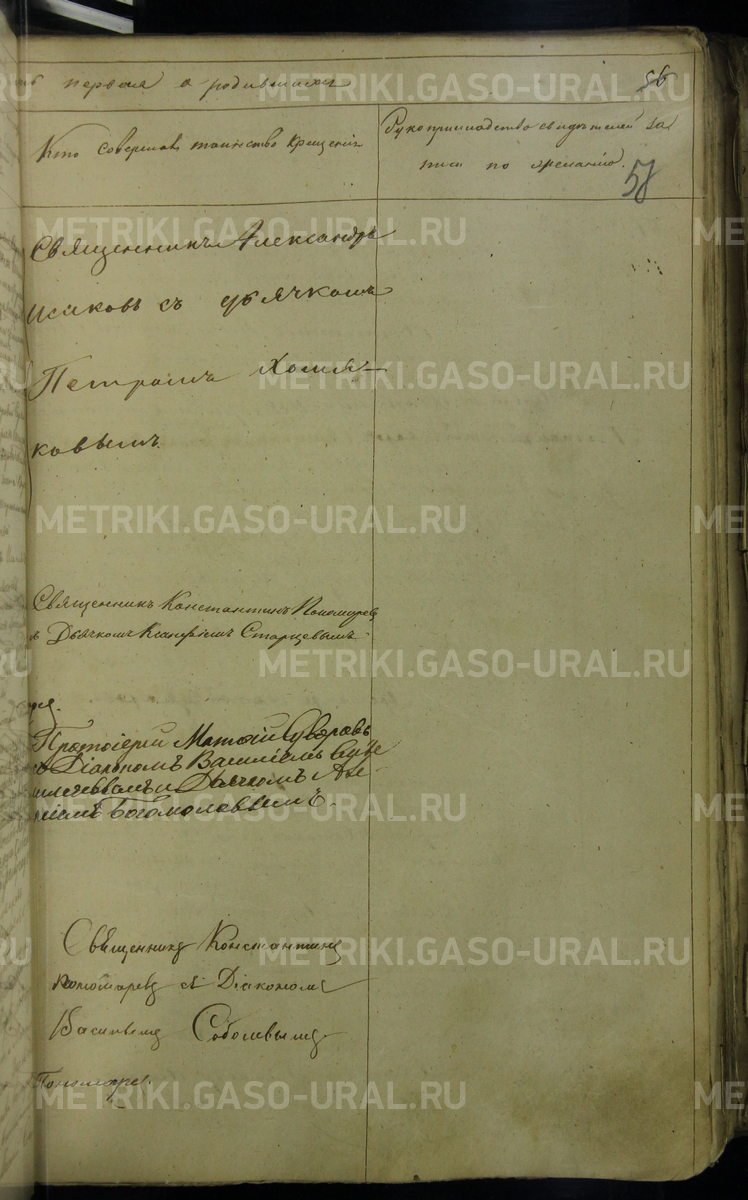 первая о родившихся
56
Кто совершалъ таинство крещенія
Рукоприкладство свидѣтелей за
писи по желанію.
57
Священникъ Александръ
Исаковъ съ дьячкомъ
Петромъ Хомя-
ковымъ
Священникъ Константинъ Пономаревъ
съ Дьячкомъ Старцевымъ
Протоіерей Матѳій Суворовъ
съ Діакономъ Василіемъ
и Дьячкомъ Але-
Богомоловымъ.
Священникъ Константинъ
Пономаревъ съ Діакономъ
Васильемъ Соболевымъ
METRIKI.GASO-URAL.RU
METRIKI.GASO-URAL.RU
METRIKI.GASO-URAL.RU
METRIKI.GASO-URAL.RU
METRIKI.GASO-URAL.RU
METRIKI.GASO-URAL.RU
METRIKI.GASO-URAL.RU
METRIKI.GASO-URAL.RU